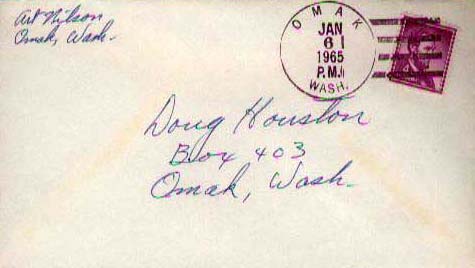 Art Nilson
Omak, Wash.
OMAK
JAN
6
1965
P.M.
WASH.
Doug Houston
Box 403
Omak, Wash.